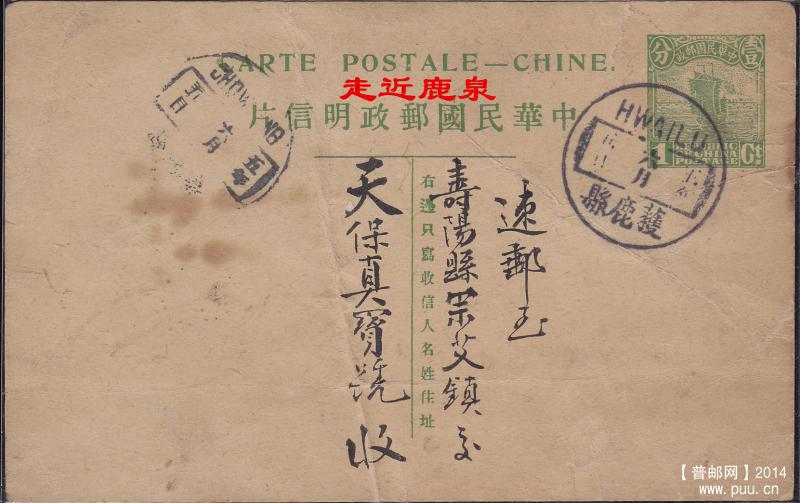 CARTE POSTALE—CHINE.
走近鹿泉
片信明政郵國民華中
分 中華民國郵政 壹
1 REPUBLIC OF CHINA POSTAGE Ct.
HWAILU
六月
縣鹿獲
五年
六月
日
速郵至
壽陽縣宗艾鎮交
右邊只寫收信人名姓住址
天保真寶號 收
【普邮网】2014
www.puu.cn